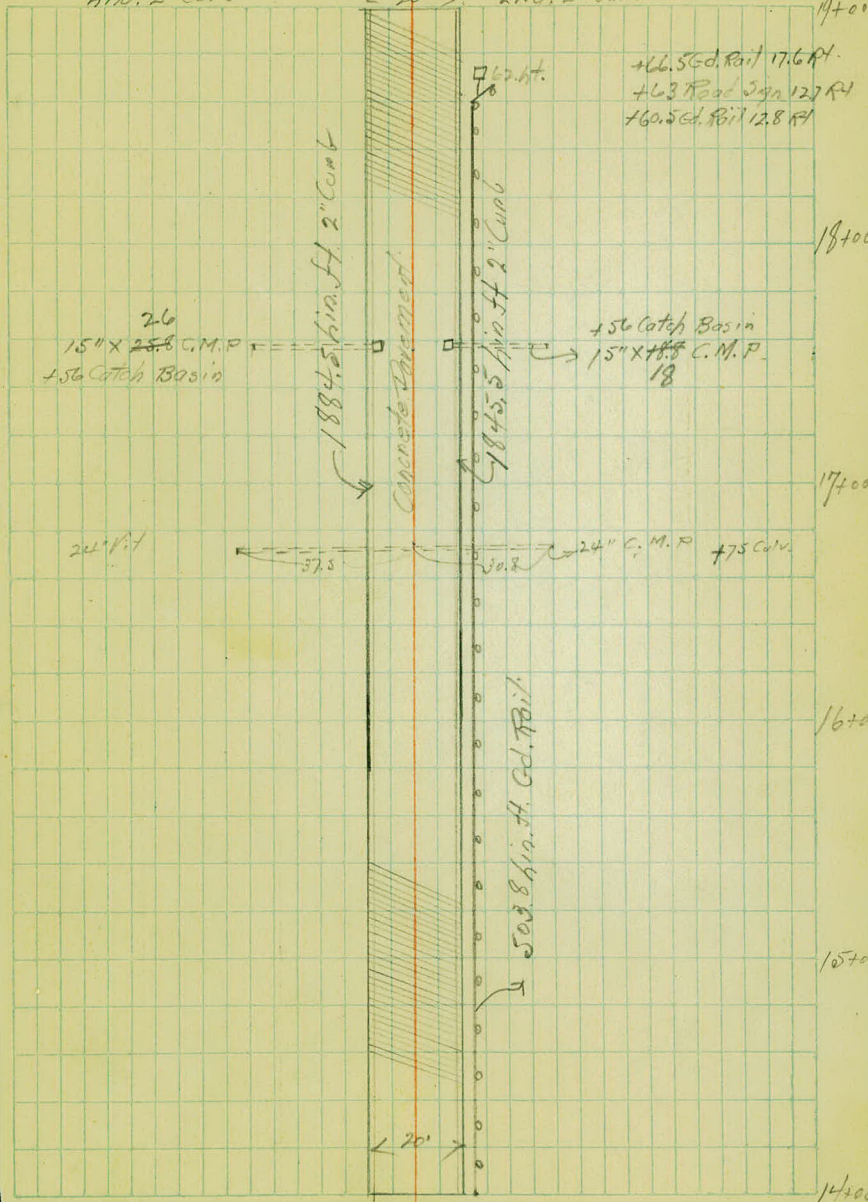 19+00
+66.5 Gd. Rail 17.6 Rt.
+63 Road Sign 12.7 Rt
+60.5 Gd. Rail 12.8 Rt
1884.5 Lin. ft. 2" Curb
Concrete Pavement
1845.5 Lin. ft 2" Curb
18+00
26
15" X 25.8 C.M.P
+56 Catch Basin
+56 Catch Basin
15" X 18.8 C.M.P.
18
17+00
24" Vit
37.5
30.8
24" C.M.P
+75 Culv.
16+0
503.8 Lin. ft. Gd. Rail
15+0
20'
14+0